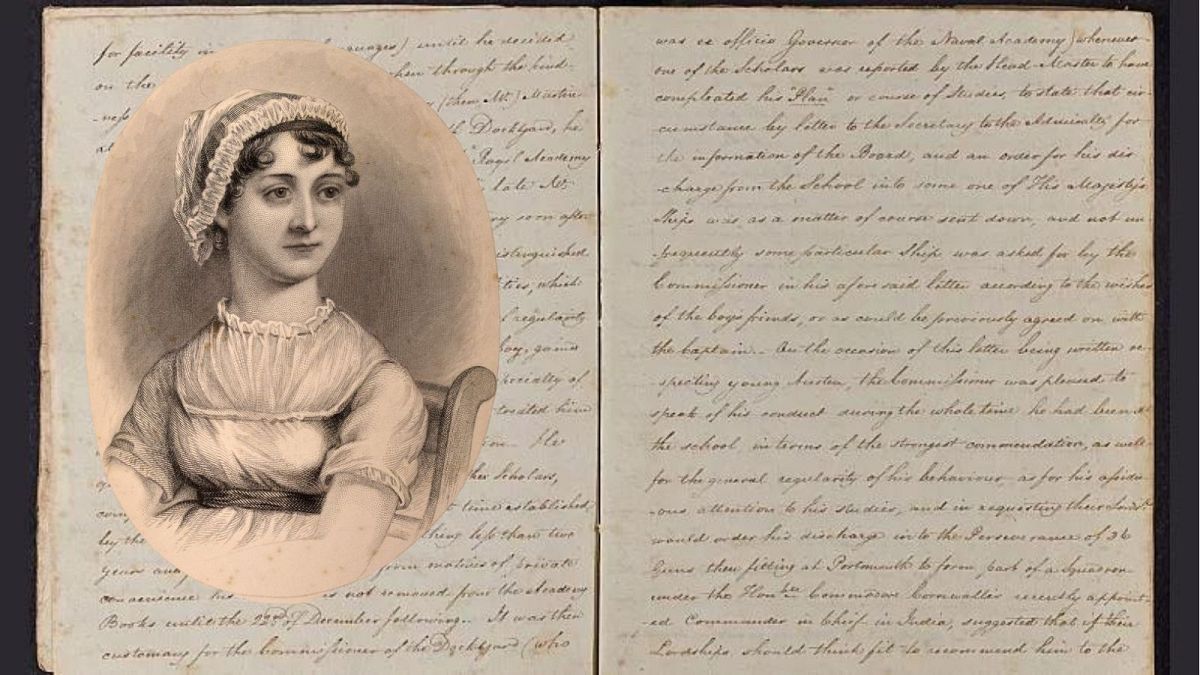 for facility in languages) until he decided
on the when through the kind-
-ness (then Mr) Martin
Dockyard, he
Royal Academy
late Mr
very soon after
distinguished
ties, which
regularity
boy, gained
specially of
treated him
He
other Scholars,
time established
by the thing less than two
years and from motives of private
convenience his is not removed from the Academy
Books until the 22nd of December following. It was then
customary for the Commissioner of the Dockyard (who
was ex officio Governor of the Naval Academy) whenever
one of the Scholars was reported by the Head-Master to have
compleated his "Plan" or course of Studies, to state that cir-
-cumstance by letter to the Secretary to the Admiralty for
the information of the Board, and an order for his dis
-charge from the School into some one of His Majesty's
Ships was as a matter of course sent down, and not un
-frequently some particular Ship was asked for by the
Commissioner in his aforesaid letter according to the wishes
of the boys friends, or as could be previously agreed on with
the Captain. On the occasion of this letter being written re
-specting young Austen, the Commissioner was pleased to
speak of his conduct during the whole time he had been at
the school in terms of the strongest commendation, as well
for the general regularity of his behaviour as for his assidu
-ous attention to his studies, and in requesting their Lordps
would order his discharge into the Perseverance of 36
Guns then fitting at Portsmouth to form part of a Squadron
under the Honble Commodore Cornwallis recently appoint-
-ed Commander in Chief in India, suggested that if their
Lordships should think fit to recommend him to the